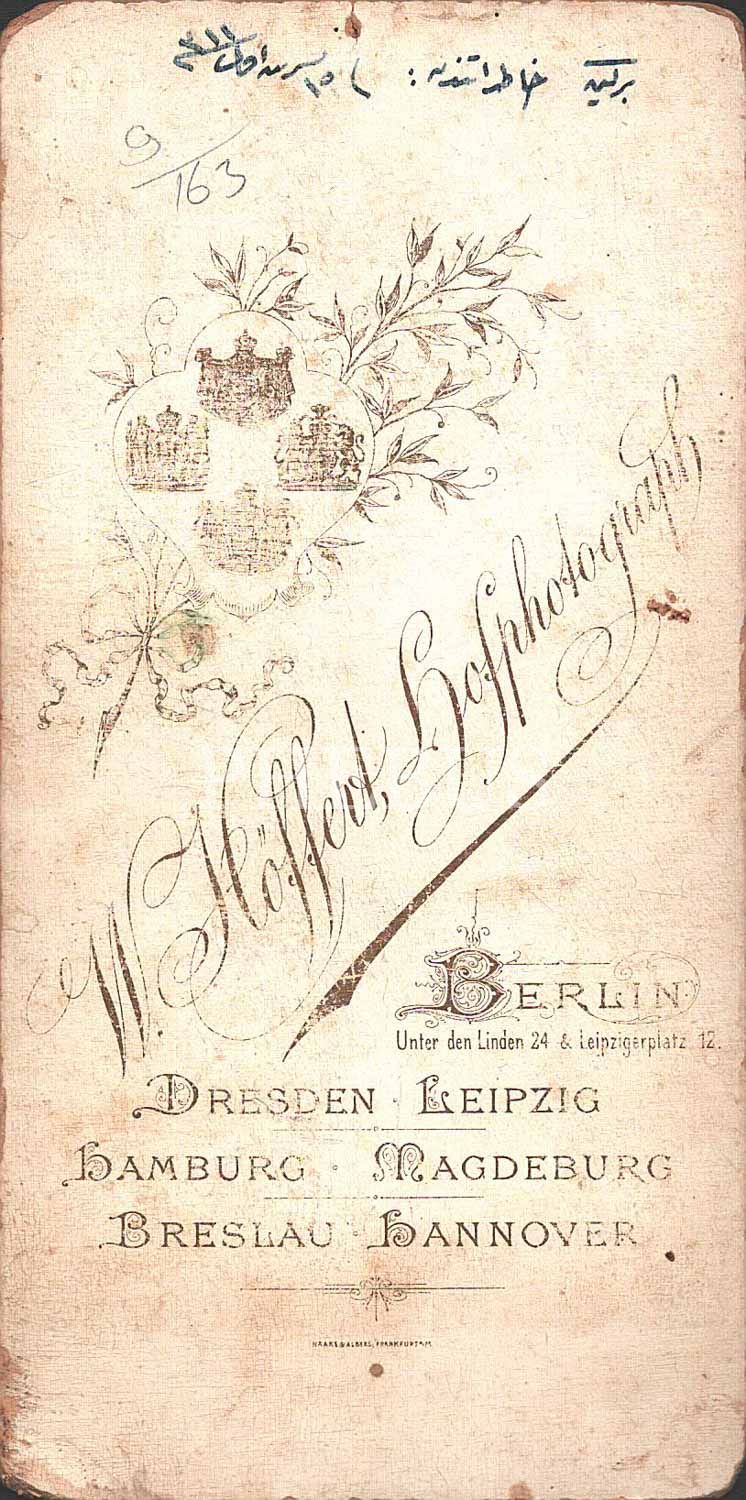 خاطراتندن :
9/163
W. Höffert, Hofphotograph
BERLIN
Unter den Linden 24 & Leipzigerplatz 12.
DRESDEN · LEIPZIG
HAMBURG · MAGDEBURG
BRESLAU · HANNOVER
HAAKE & ALBERS, FRANKFURT A/M.